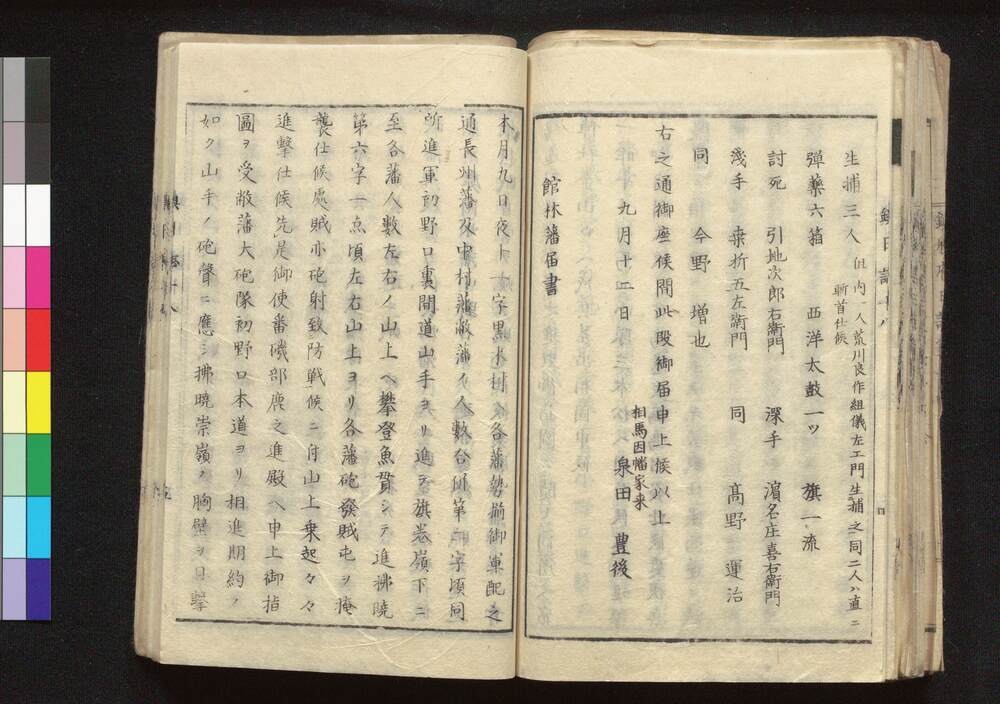 生捕三人 但内一人荒川良作組儀左エ門生捕之同二人ハ直ニ
斬首仕候
弾藥六箱 西洋太鼓一ツ 旗一流
討死 引地次郎右衛門 深手 濵名庄喜右衛門
淺手 桒折五左衛門 同 髙野運治
同 今野増也
右之通御座候間此段御届申上候以上
九月十二日 相馬因幡家来 泉田豊後
館林藩届書
本月九日夜十一字黒木村ヘ各藩勢揃御軍配之
通長州藩及中村藩敝藩々人數合併第四字頃同
所進軍初野口裏間道山手ヨリ進テ旗巻嶺下ニ
至各藩人數左右ノ山上ヘ攀登魚貫シテ進拂曉
第六字一点頃左右山上ヨリ各藩砲發賊屯ヲ掩
襲仕候處賊亦砲射致防戦候ニ付山上乗起々々
進撃仕候先是御使番磯部鹿之進殿ヘ申上御指
圖ヲ受敝藩大砲隊初野口本道ヨリ相進朋約ノ
如ク山手ノ砲聲ニ應シ拂曉崇嶺ノ胸壁ヲ目撃